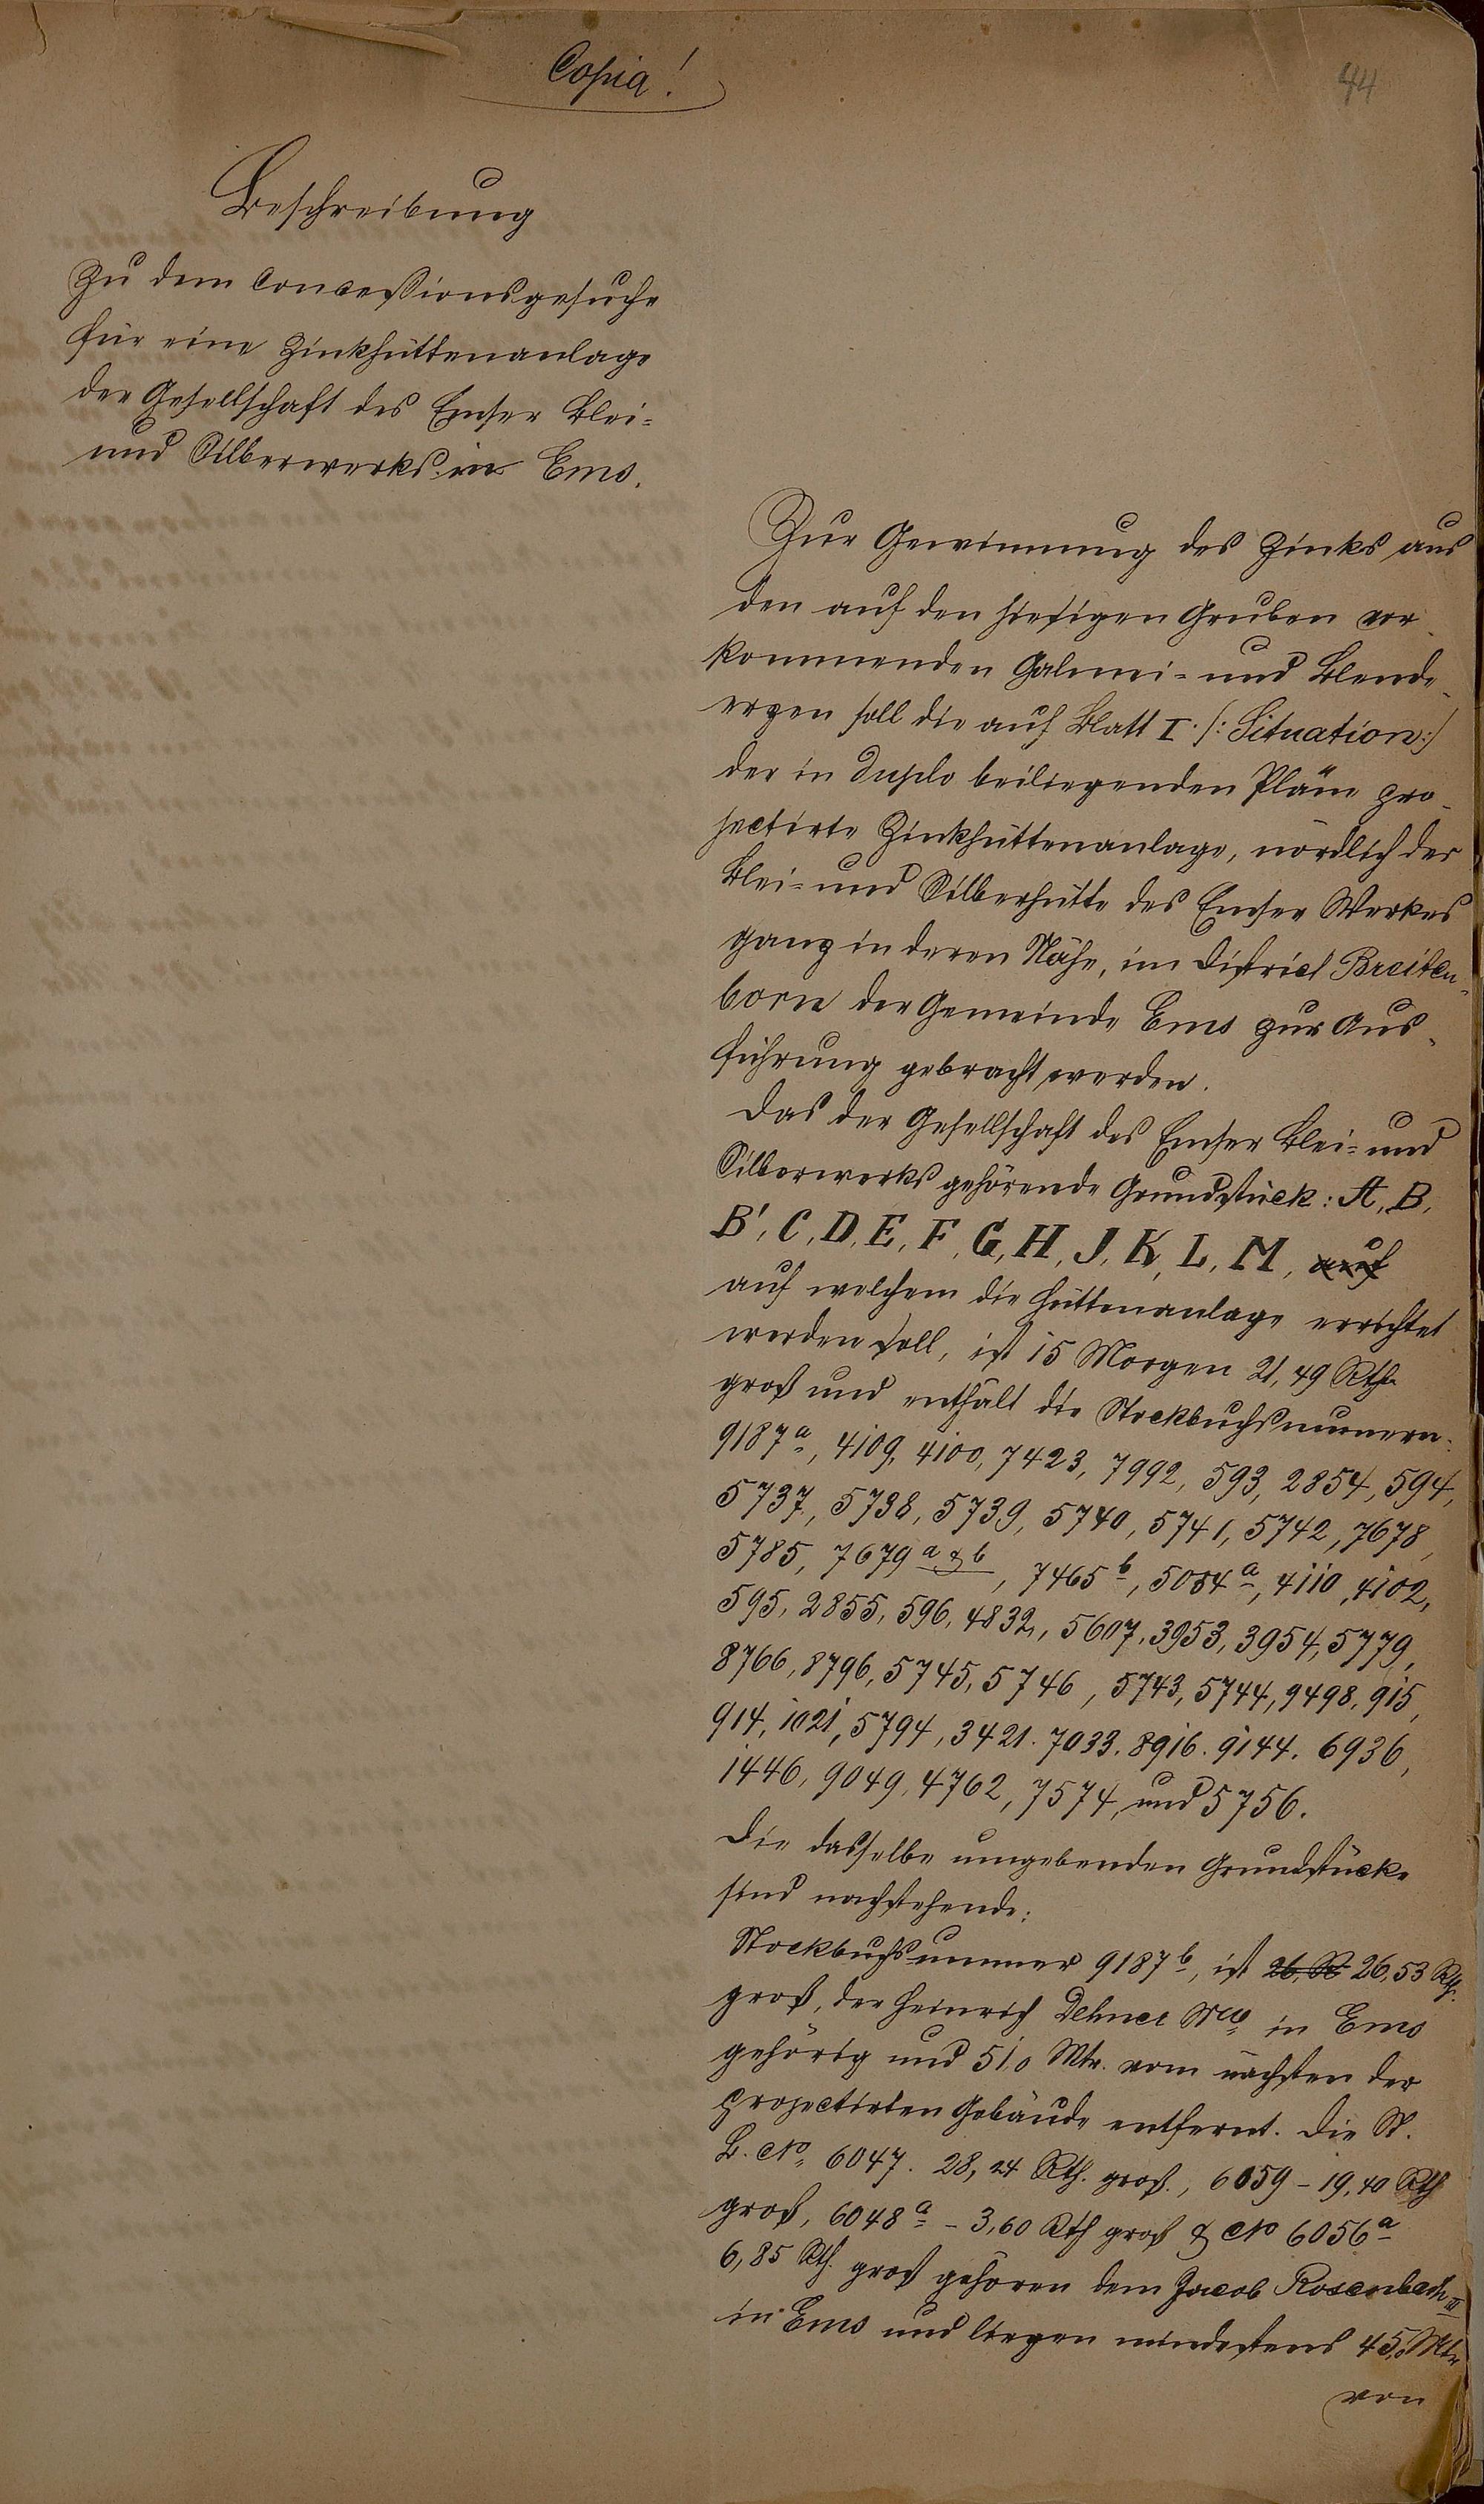 Copia!
44
Beschreibung
zu dem Concessionsgesuche
für eine Zinkhüttenanlage
der Gesellschaft des Emser Blei-
und Silberwerks in Ems.
Zur Gewinnung des Zinks aus
den auf den hiesigen Gruben vor-
kommenden Galmei- und Blende-
erzen soll die auf Blatt I. /: Situation :/
der in duplo beiliegenden Pläne pro-
jectirte Zinkhüttenanlage, nördlich der
Blei- und Silberhütte des Emser Werkes
ganz in deren Nähe, im District Breiten-
born der Gemeinde Ems zur Aus-
führung gebracht werden.
Das der Gesellschaft des Emser Blei- und
Silberwerks gehörende Grundstück: A, B,
B', C, D, E, F, G, H, J, K, L, M, auf
auf welchem die Hüttenanlage errichtet
werden soll, ist 15 Morgen 21,49 Rth.
groß und enthält die Stockbuchsnumern:
9187a, 4109, 4100, 7423, 7992, 593, 2854, 594,
5737, 5738, 5739, 5740, 5741, 5742, 7678,
5785, 7679 a & b, 7465b, 5084a, 4110, 4102,
595, 2855, 596, 4832, 5607, 3953, 3954, 5779,
8766, 8796, 5745, 5746, 5743, 5744, 9498, 915,
914, 1021, 5794, 3421. 7033. 8916. 9144. 6936,
1446, 9049, 4762, 7574, und 5756.
Die dasselbe umgebenden Grundstücke
sind nachstehende:
Stockbuchsnummer 9187b, ist 26,53 Rth.
groß, der Heinrich in Ems
gehörig und 51,0 Mtr. vom nächsten der
projectirten Gebäude entfernt. Die St.
B. No. 6047. 28,24 Rth. groß., 6059 - 19,40 Rth
groß, 6048a - 3,60 Rth groß & No 6056a
6,85 Rth. groß gehören dem Jacob Rosenbach III
in Ems und liegen mindestens 45,0 Mtr
von